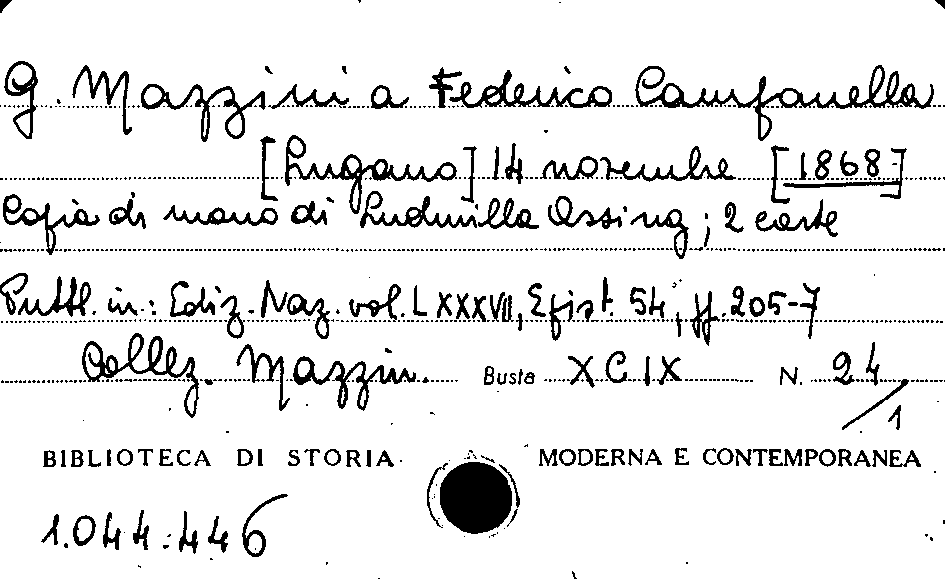 G. Mazzini a Federico Campanella
[Lugano] 14 novembre [1868]
Copia di mano di Ludmilla Assing; 2 carte
Pubbl. in: Ediz. Naz. vol. LXXXVII, Epist. 54, pp. 205-7
Collez. Mazzin. Busta XCIX N. 24/1
BIBLIOTECA DI STORIA MODERNA E CONTEMPORANEA
1.044.446